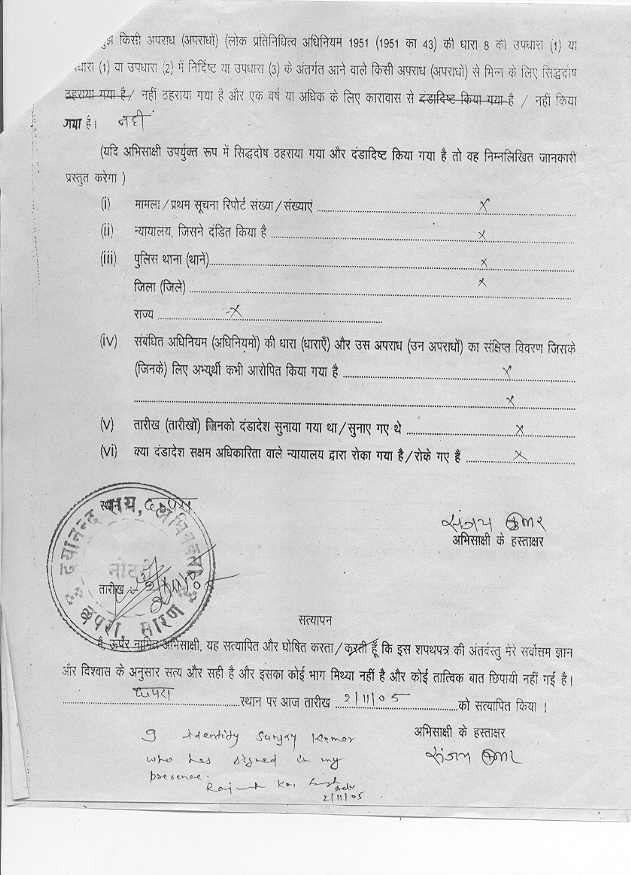 मुझे किसी अपराध (अपराधों) (लोक प्रतिनिधित्व अधिनियम 1951 (1951 का 43) की धारा 8 की उपधारा (1) या
(1) या उपधारा (2) में निर्दिष्ट या उपधारा (3) के अंतर्गत आने वाले किसी अपराध (अपराधों) से भिन्न के लिए सिद्धदोष
ठहराया गया है / नहीं ठहराया गया है और एक वर्ष या अधिक के लिए कारावास से दंडादिष्ट किया गया है / नहीं किया
गया है। नहीं
(यदि अभिसाक्षी उपर्युक्त रूप में सिद्धदोष ठहराया गया और दंडादिष्ट किया गया है तो वह निम्नलिखित जानकारी
प्रस्तुत करेगा )
(i) मामला / प्रथम सूचना रिपोर्ट संख्या / संख्याएं x
(ii) न्यायालय, जिसने दंडित किया है x
(iii) पुलिस थाना (थाने) x
जिला (जिले) x
राज्य -x
(iv) संबंधित अधिनियम (अधिनियमों) की धारा (धाराएँ) और उस अपराध (उन अपराधों) का संक्षिप्त विवरण जिसके
(जिनके) लिए अभ्यर्थी कभी आरोपित किया गया है x
x
(v) तारीख (तारीखों) जिनको दंडादेश सुनाया गया था / सुनाए गए थे x
(vi) क्या दंडादेश सक्षम अधिकारिता वाले न्यायालय द्वारा रोका गया है / रोके गए हैं x
स्थान छपरा
दयानन्द राय, अधिवक्ता
नोटरी
छपरा, सारण
तारीख
संजय कुमार
अभिसाक्षी के हस्ताक्षर
सत्यापन
ऊपर नामित अभिसाक्षी, यह सत्यापित और घोषित करता / करती हूँ कि इस शपथपत्र की अंतर्वस्तु मेरे सर्वोत्तम ज्ञान
और विश्वास के अनुसार सत्य और सही है और इसका कोई भाग मिथ्या नहीं है और कोई तात्विक बात छिपायी नहीं गई है।
छपरा स्थान पर आज तारीख 2/11/05 को सत्यापित किया !
अभिसाक्षी के हस्ताक्षर
संजय कुमार
I identify Sanjay Kumar
who has signed in my
presence.
Rajesh Kr. Adv
2/11/05